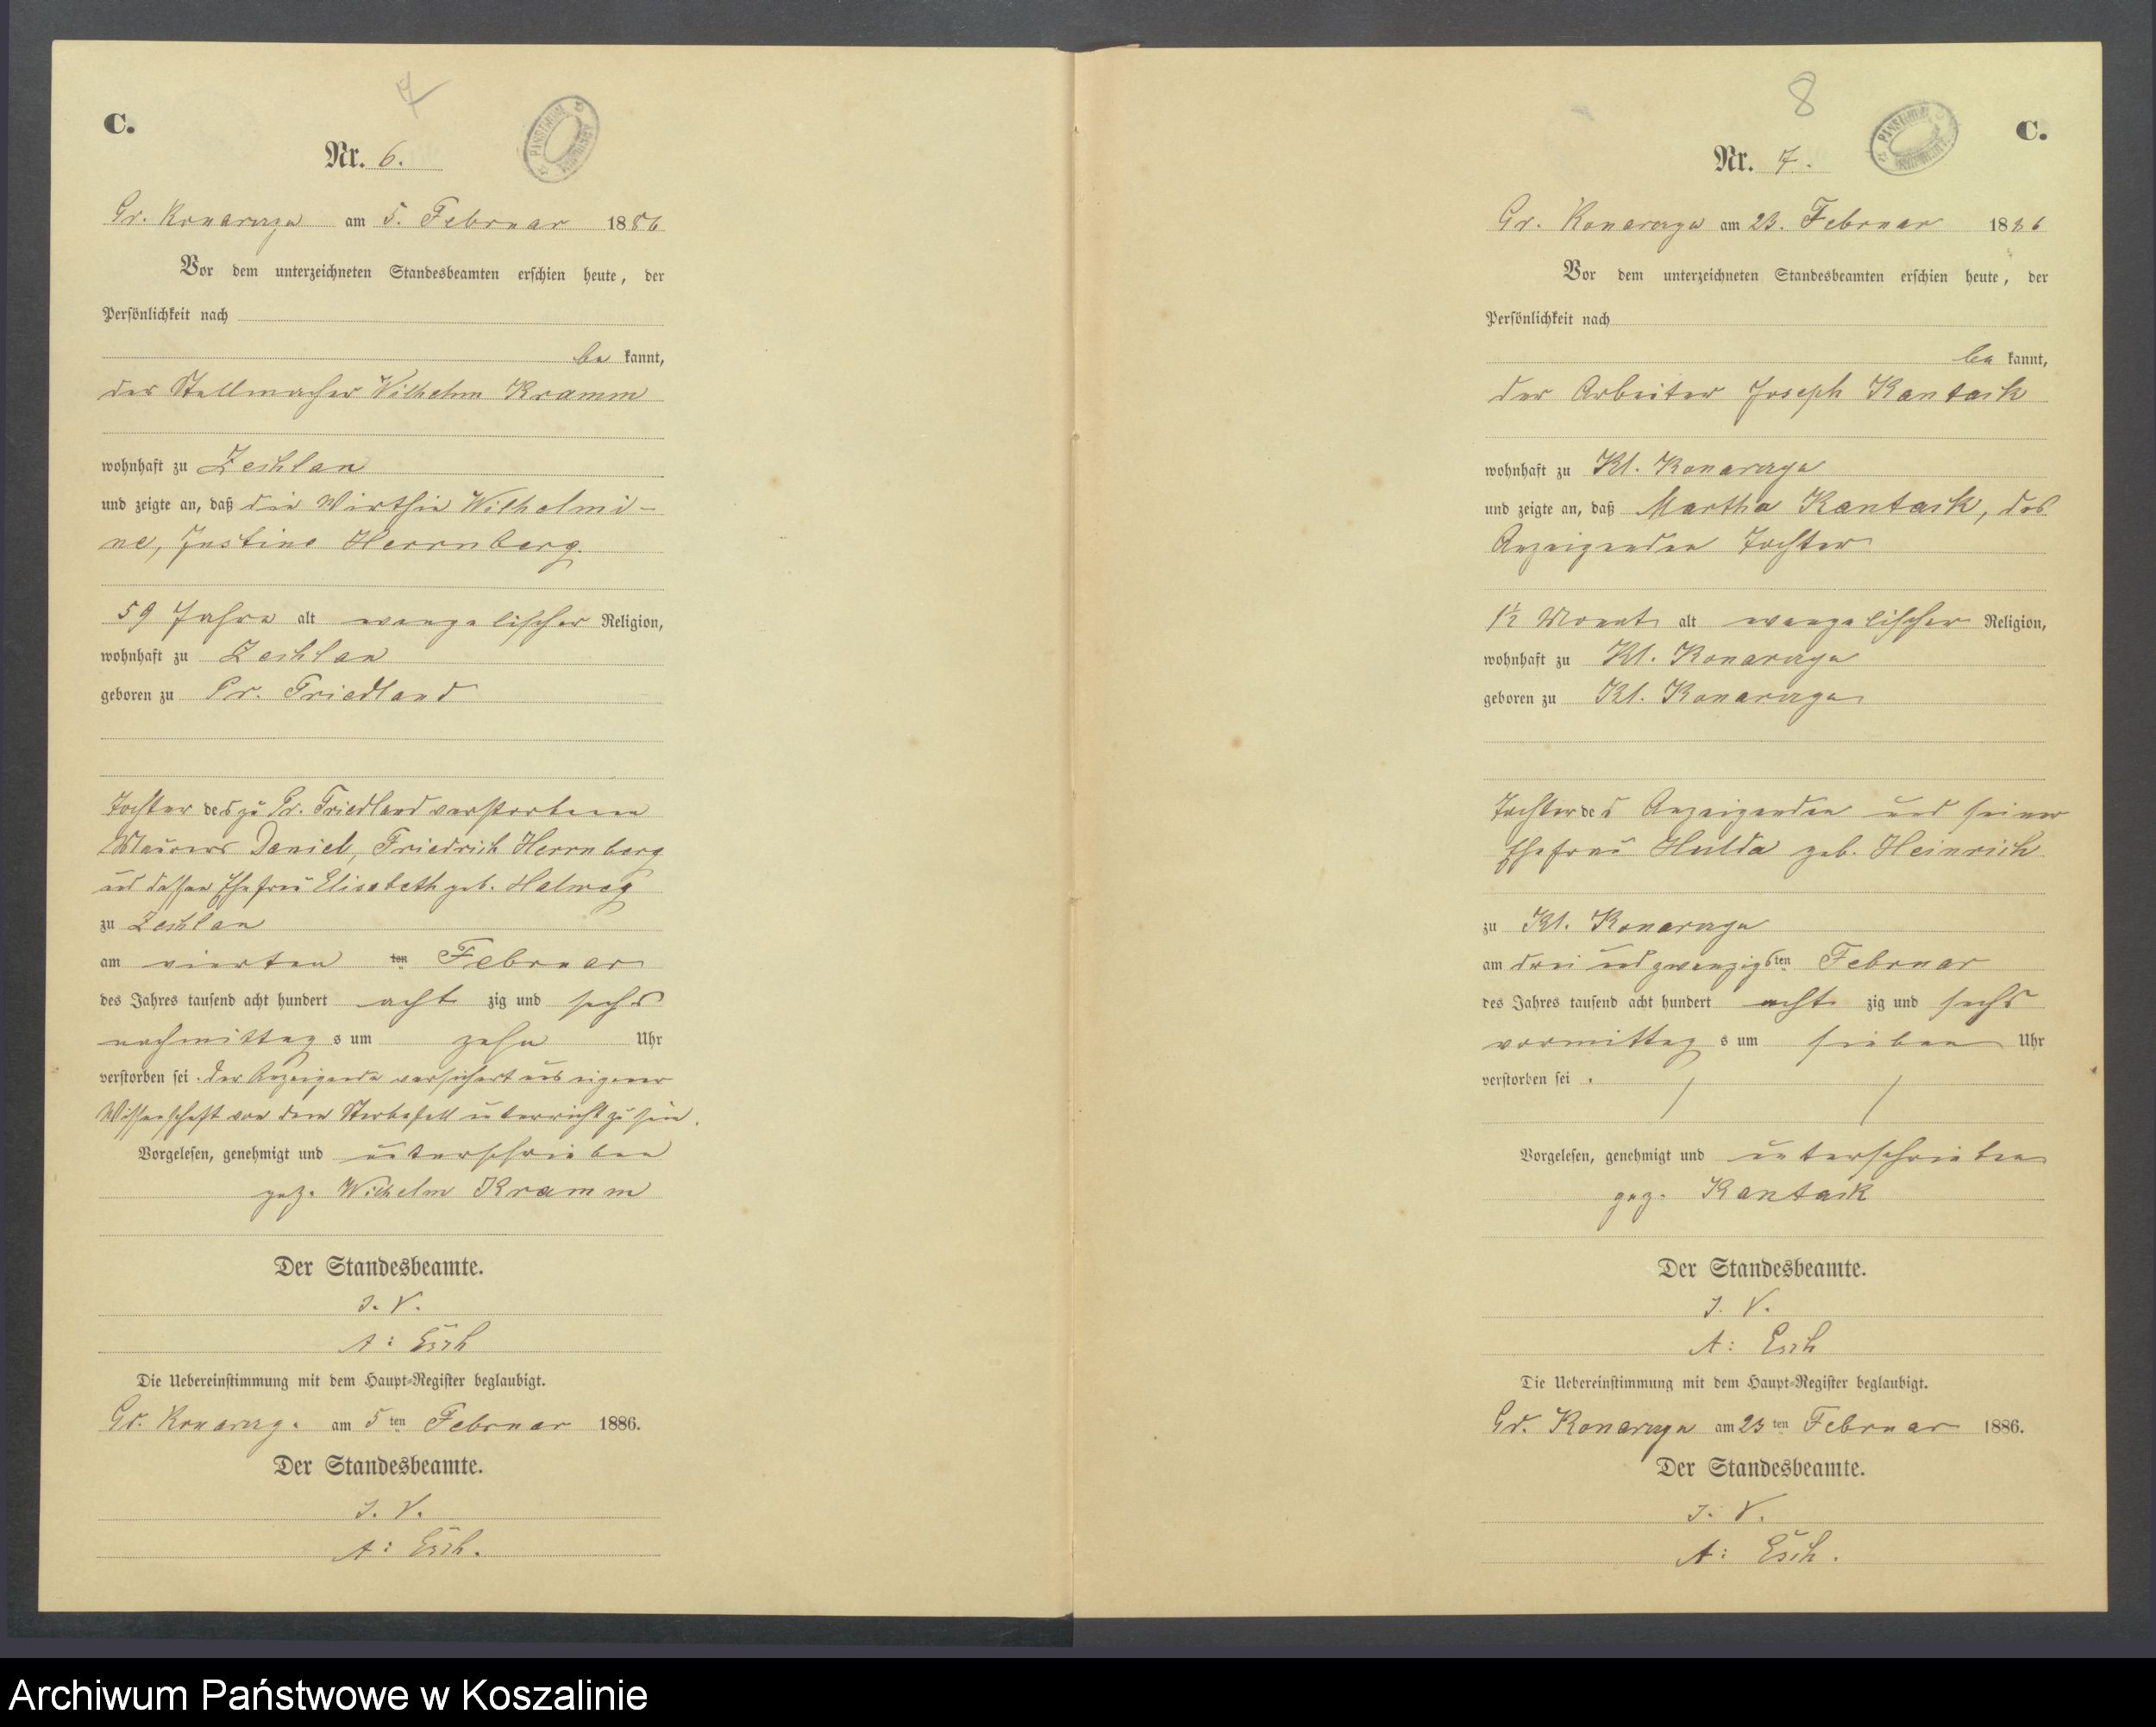 7
C.
Nr. 6.
Gr. Konarczyn am 5. Februar 1886
Vor dem unterzeichneten Standesbeamten erschien heute, der
Persönlichkeit nach
be kannt,
der Stellmacher Wilhelm Kramm
wohnhaft zu Zechlau
und zeigte an, daß die Wirthin Wilhelmi-
ne, Justine Herrnberg
59 Jahre alt evangelischer Religion,
wohnhaft zu Zechlau
geboren zu Pr. Friedland
Tochter des zu Pr. Friedland verstorbenen
Maurers Daniel, Friedrich Herrnberg
und dessen Ehefrau Elisabeth geb. Helweg
zu Zechlau
am vierten ten Februar
des Jahres tausend acht hundert acht zig und sechs
nachmittag s um zehn Uhr
verstorben sei. Der Anzeigende versichert aus eigener
Wissenschaft von dem Sterbefall unterricht zu sein.
Vorgelesen, genehmigt und unterschrieben
gez. Wilhelm Kramm
Der Standesbeamte.
I. V.
A: Esch
Die Uebereinstimmung mit dem Haupt-Register beglaubigt.
Gr. Konarczyn am 5 ten Februar 1886.
Der Standesbeamte.
I. V.
A: Esch.
8
C.
Nr. 7.
Gr. Konarczyn am 23. Februar 1886
Vor dem unterzeichneten Standesbeamten erschien heute, der
Persönlichkeit nach
be kannt,
der Arbeiter Joseph Kantack
wohnhaft zu Kl. Konarczyn
und zeigte an, daß Martha Kantack, des
Anzeigenden Tochter
1½ Monat alt evangelischer Religion,
wohnhaft zu Kl. Konarczyn
geboren zu Kl. Konarczyn
Tochter des Anzeigenden und seiner
Ehefrau Hulda geb. Heinrich
zu Kl. Konarczyn
am drei und zwanzigsten Februar
des Jahres tausend acht hundert acht zig und sechs
vormittag s um sieben Uhr
verstorben sei.
Vorgelesen, genehmigt und unterschrieben
gez. Kantack
Der Standesbeamte.
I. V.
A: Esch
Die Uebereinstimmung mit dem Haupt-Register beglaubigt.
Gr. Konarczyn am 23 ten Februar 1886.
Der Standesbeamte.
I. V.
A: Esch.
Archiwum Państwowe w Koszalinie